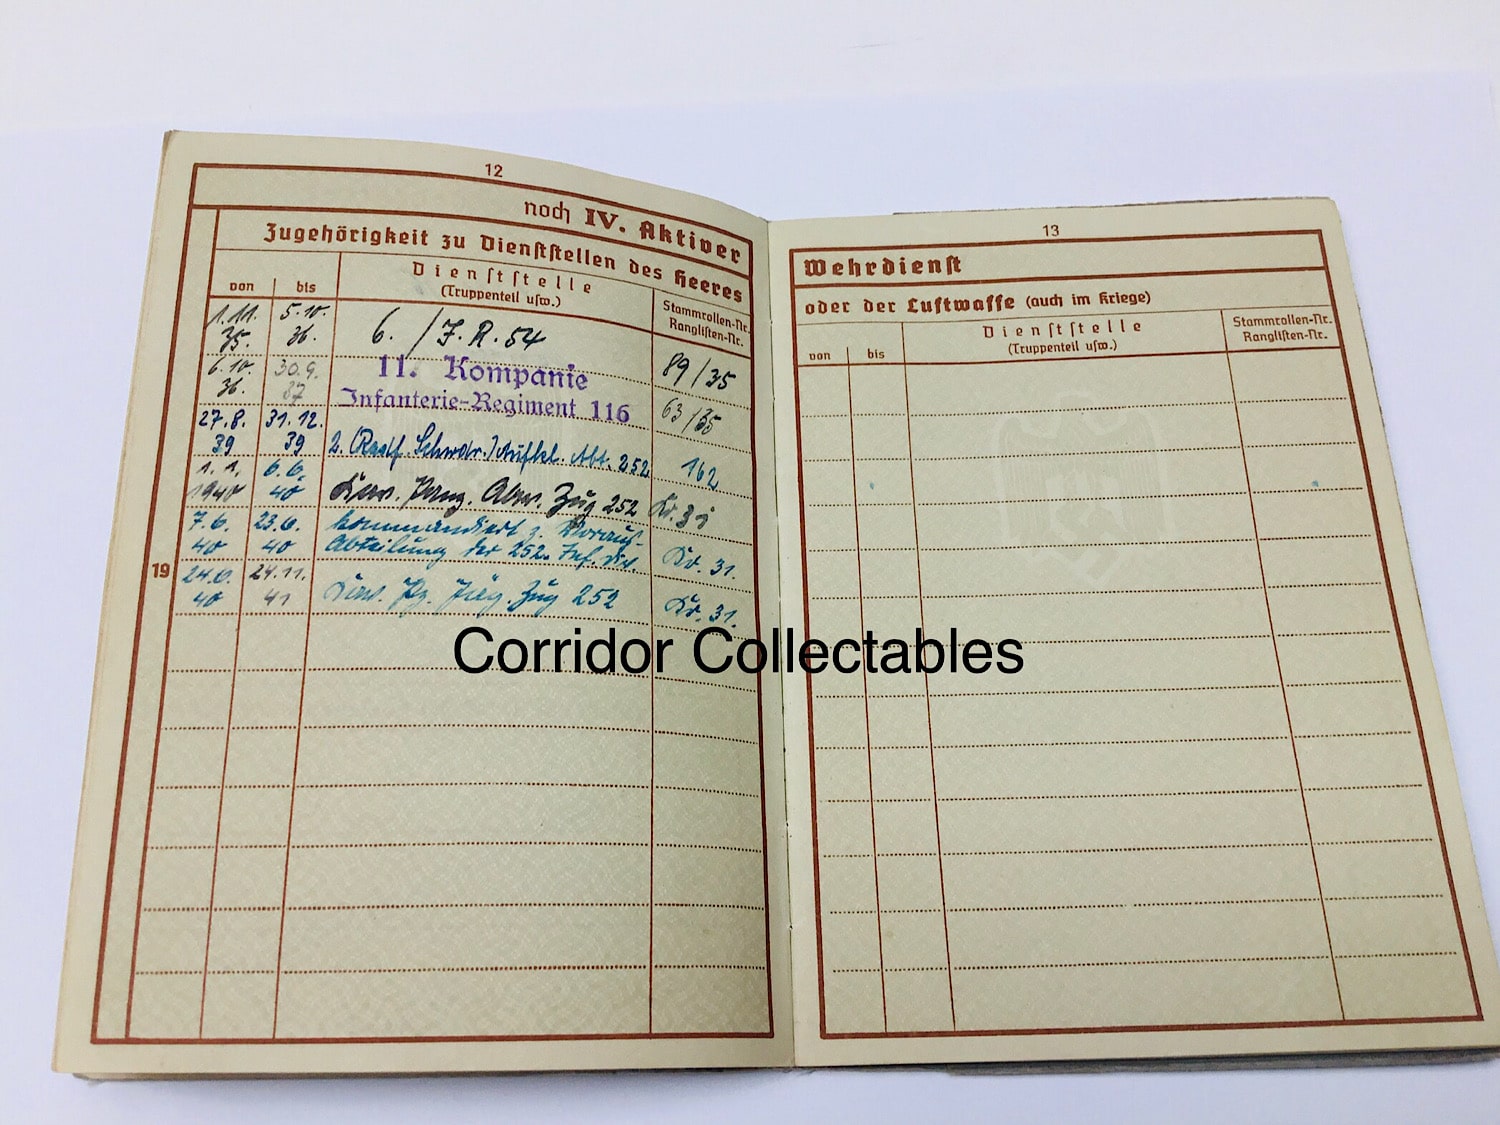 12
noch IV. Aktiver
Zugehörigkeit zu Dienststellen des Heeres
von bis Dienststelle (Truppenteil usw.) Stammrollen-Nr. Ranglisten-Nr.
1.11. 35. 5.10. 36. 6./J.R.54 89/35
6.10. 36. 30.9. 37 11. Kompanie Infanterie-Regiment 116 63/35
27.8. 39 31.12. 39 2. (Radf. Schwdr.) Aufkl. Abt. 252 162
1.1. 1940 6.6. 40 Panz. Abw. Zug 252 Kr. 31
7.6. 40 23.6. 40 kommandiert z. Voraus-
Abteilung der 252. Inf. Div. Kr. 31.
19 24.6. 40 24.11. 41 Pz. Jäg. Zug 252 Kr. 31.
13
Wehrdienst
oder der Luftwaffe (auch im Kriege)
von bis Dienststelle (Truppenteil usw.) Stammrollen-Nr. Ranglisten-Nr.
Corridor Collectables